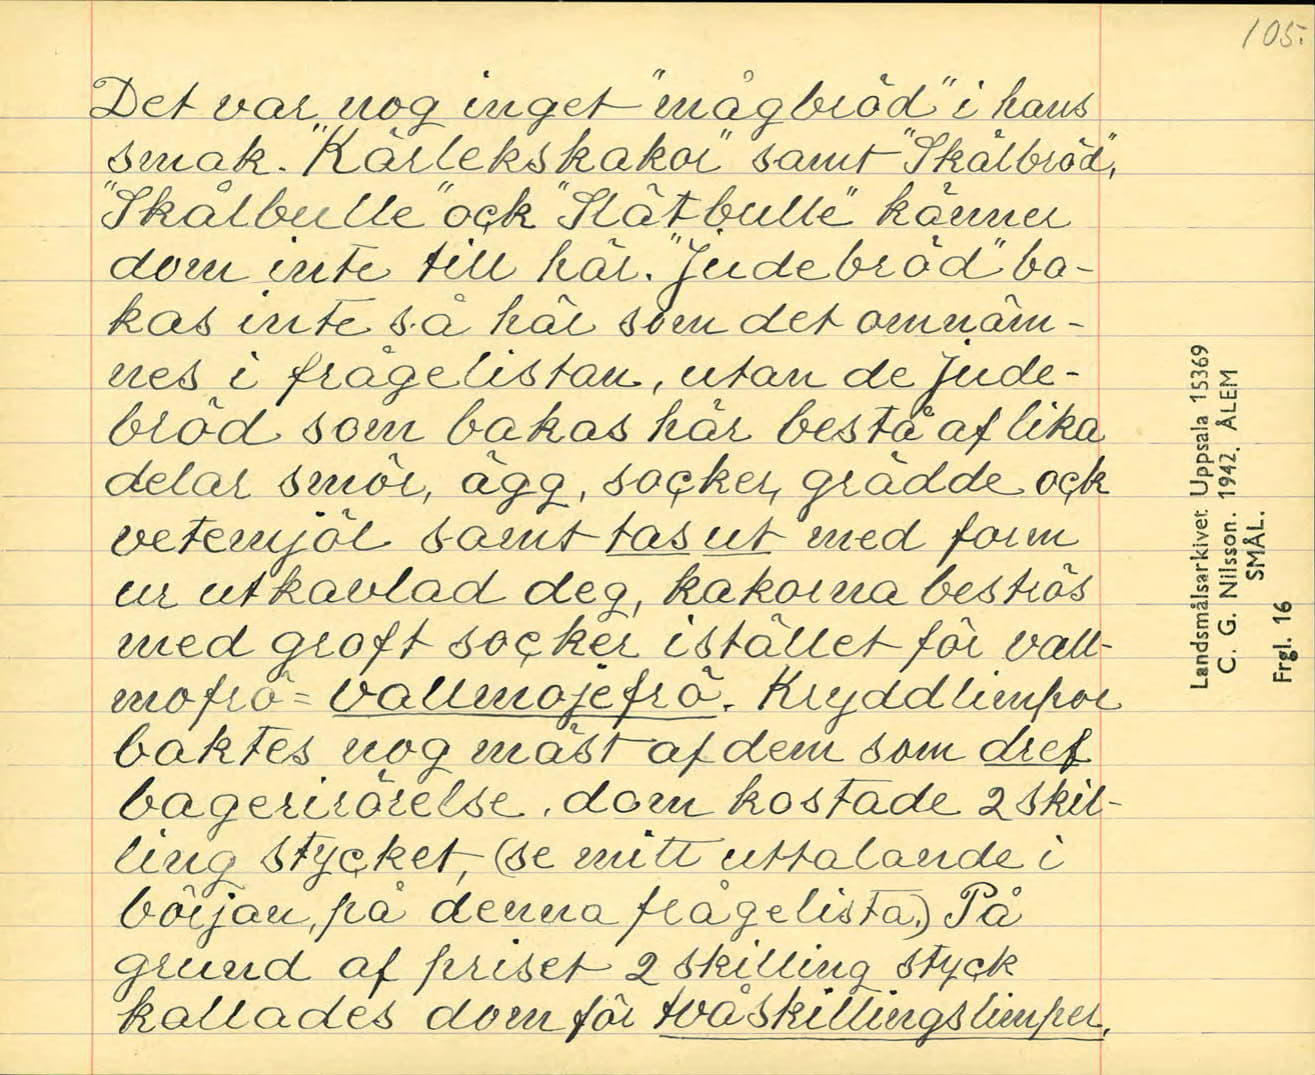 105.
Det var nog inget "mågbröd" i hans
smak. "Kärlekskakor" samt "Skålbröd",
"Skålbulle" oçk "Slätbulle" känner
dom inte till här. "Judebröd" ba-
kas inte så här som det omnäm-
nes i frågelistan, utan de jude-
bröd som bakas här bestå af lika
delar smör, ägg, soçker, grädde oçk
vetemjöl samt tas ut med form
ur utkavlad deg, kakorna beströs
med groft soçker istället för vall-
mofrö = vallmojefrö. Kryddlimpor
baktes nog mäst af dem som dref
bagerirörelse, dom kostade 2 skil-
ling styçket, (se mitt uttalande i
början, på denna frågelista.) På
grund af priset 2 skilling styçk
kallades dom för tvåskillingslimper.
Landsmålsarkivet Uppsala 15369
C. G. Nilsson. 1942. ÅLEM
SMÅL.
Frgl. 16